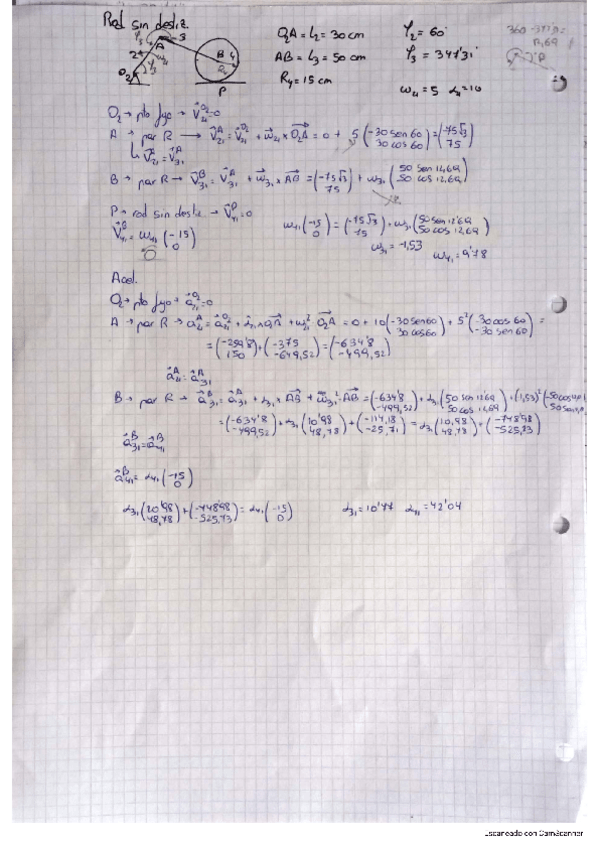 Rod sin desliz.
O₂A = L₂ = 30 cm φ₂ = 60°
AB = L₃ = 50 cm φ₃ = 347'31°
R₄ = 15 cm
ω₂₁ = 5 α₂₁ = 10
O₂ → pto fijo → V₂₁^O₂ = 0
A → par R → V₂₁^A = V₂₁^O₂ + ω₂₁ × O₂A = 0 + 5 (-30 sen 60 / 30 cos 60) = (-75√3 / 75)
V₂₁^A = V₃₁^A
B → par R → V₃₁^B = V₃₁^A + ω₃₁ × AB = (-75√3 / 75) + ω₃₁ (50 sen 12,69 / 50 cos 12,69)
P → rod sin desliz → V₄₁^P = 0
V₄₁^B = ω₄₁ (-15 / 0) ω₄₁ (-15 / 0) = (-75√3 / 75) + ω₃₁ (50 sen 12'69 / 50 cos 12,69)
ω₃₁ = -1,53 ω₄₁ = 9'78
Acel.
O₂ → pto fijo → a₂₁^O₂ = 0
A → par R → a₂₁^A = a₂₁^O₂ + α₂₁ × O₂A + ω₂₁² O₂A = 0 + 10 (-30 sen 60 / 30 cos 60) + 5² (-30 cos 60 / -30 sen 60) =
= (-259'8 / 150) + (-375 / -649,52) = (-634'8 / -499,52)
a₂₁^A = a₃₁^A
B → par R → a₃₁^B = a₃₁^A + α₃₁ × AB + ω₃₁² · AB = (-634'8 / -499,52) + α₃₁ (50 sen 12,69 / 50 cos 12,69) + (1,53)²
= (-634'8 / -499,52) + α₃₁ (10'98 / 48,78) + (-114,18 / -25,71) = α₃₁ (10,98 / 48,78) + (-748'98 / -525,73)
a₃₁^B = a₄₁^B
a₄₁^B = α₄₁ (-15 / 0)
α₃₁ (10'98 / 48,78) + (-748'98 / -525,73) = α₄₁ (-15 / 0) α₃₁ = 10'77 α₄₁ = 42'04
Escaneado con CamScanner